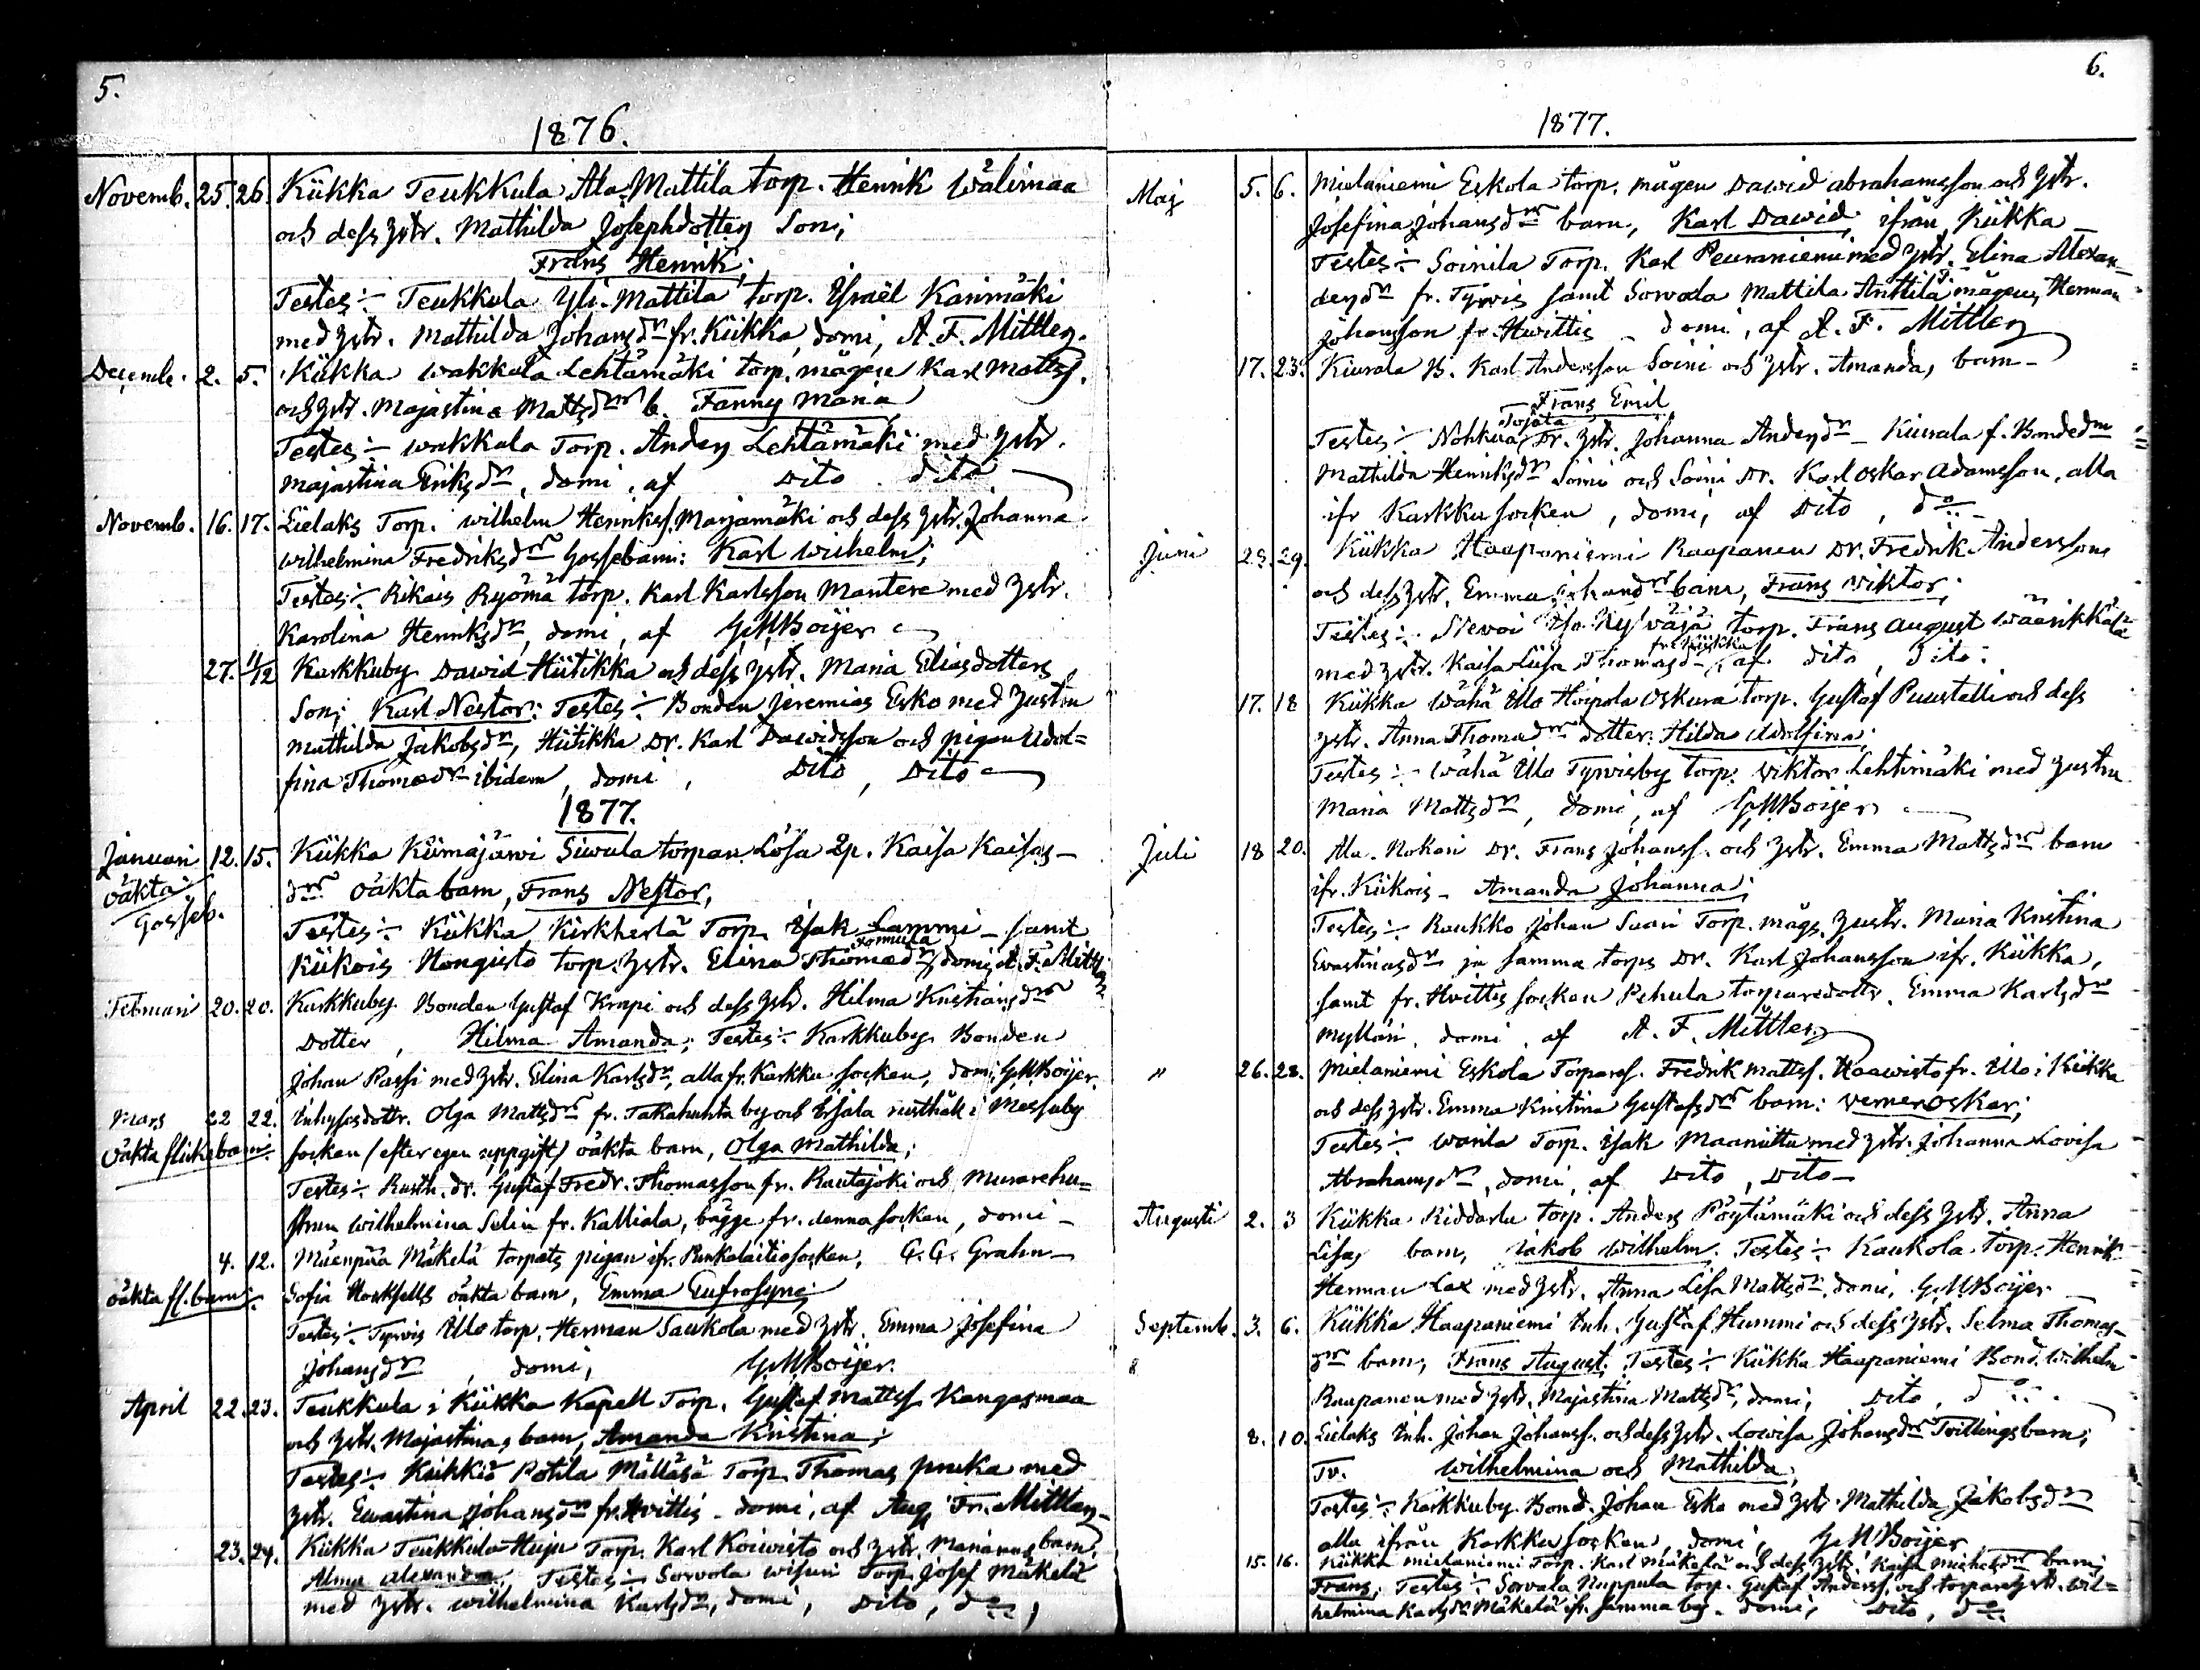 5.
1876.
Novemb. 25. 26. Kiikka Teukkula Ala-Mattila torp. Henrik Wälimaa
och dess hstr. Mathilda Josephdotters Son;
Frans Henrik;
Testes:- Teukkula Yli-Mattila torp. Israël Karimäki
med hstr. Mathilda Johansdr fr. Kiikka, domi, A. F. Mittler.
Decemb. 2. 5. Kiikka Wakkala Lehtämäki torp. mågen Karl Mattss.
och hstr. Majastina Mattsdrs b. Fanny Maria
Testes:- Wakkala Torp. Anders Lehtämäki med hstr.
Majastina Eriksdr, domi, af Dito dito
Novemb. 16. 17. Lielaks Torp. Wilhelm Henrikss. Marjamäki och dess hstr. Johanna
Wilhelmina Fredriksdrs Gossebarn: Karl Wilhelm;
Testes:- Rikais Ryömä torp. Karl Karlsson Mantere med hstr.
Karolina Henriksdr, domi, af G M Boijer
27. 1/12 Karkkuby Dawid Hiitikka och dess hstr. Maria Eliasdotters
Son; Karl Nestor: Testes:- Bonden Jeremias Esko med hustru
Mathilda Jakobsdr, Hiitikka Dr. Karl Dawidsson och pigan Udol=
fina Thomædr ibidem, domi, Dito, Dito
1877.
Januari 12. 15. Kiikka Kiimajärwi Siwula torpan Lösa Qp. Kaisa Kaisas-
oäkta drs oäkta barn, Frans Nestor,
Gosseb.
Testes:- Kiikka Kirkherlä Torp. Isak Lammi - samt
Tommila
Kiikois Hongisto torp. hstr. Elina Thomædr, domi, A. F. Mittler
Februari 20. 20. Karkkuby Bonden Gustaf Knapi och dess hstr. Hilma Kristiansdrs
Dotter, Hilma Amanda; Testes:- Karkkuby Bonden
Johan Passi med hstr. Elina Karlsdr, alla fr. Karkku socken, domi G M Boijer.
Mars 22 22. Inhysesdottr. Olga Mattsdrs fr. Takahuhta by och Ersala rusthåll i Messuby
Oäkta flickebarn: socken (efter egen uppgift) oäkta barn, Olga Mathilda;
Testes:- Rusth. dr. Gustaf Fredr. Thomasson fr. Rautajoki och Murarehu=
strun Wilhelmina Selin fr. Kalliala, bägge fr. denna socken, domi -
4. 12. Mäenpää Mäkelä torpets pigan ifr. Punkalaitio socken, G. G. Grahn
oäkta fl. barn: Sofia Hoxells oäkta barn, Emma Eufrosyne;
Testes:- Tyrvis Illo torp. Herman Saukola med hstr. Emma Josefina
Johansdr, domi, G M Boijer.
April 22. 23. Teukkula i Kiikka Kapell Torp. Gustaf Mattss. Kangasmaa
och hstr. Majastinas barn, Amanda Kristina;
Testes:- Keikkiö Potila Mälläsä Torp. Thomas Pruka med
hstr. Ewastina Johansdr fr. Hvittis - domi, af Aug. Fr. Mittler
23. 24. Kiikka Teukkula Huju Torp. Karl Koiwisto och hstr. Mariannas barn,
Alma Alexandra; Testes:- Sorvola Wisuri Torp. Josef Mäkelä
med hstr. Wilhelmina Karlsdr, domi, Dito, do
6.
1877.
Maj 5. 6. Mielaniemi Eskola torp. mågen Dawid Abrahamsson och hstr.
Josefina Johansdrs barn, Karl Dawid, ifrån Kiikka
Testes:- Soinila Torp. Karl Peuraniemi med hstr. Elina Alexan-
dersdr fr. Tyrvis samt Sorvola Mattila Anttila mågen, Herman
Johansson fr. Hvittis - domi, af A. F. Mittler
17. 23. Kiurala B. Karl Andersson Soini och hstr. Amandas barn -
Frans Emil
Tojata
Testes:- Nohkua Dr. hstr. Johanna Andersdr - Kiurala f. Bondedrn
Mathilda Henriksdr Soini och Soini Dr. Karl Oskar Adamsson, alla
ifr Karkku socken, domi, af Dito, do
Juni 23. 29. Kiikka Haapaniemi Raapanen Dr. Fredrik Anderssons
och dess hstr. Emma Johansdrs barn, Frans Wiktor;
Testes:- Stewoi Kylväjä torp. Frans August Wäärikkälä
fr. Kiikka
med hstr. Kaisa Liisa Thomasdr, af dito, Dito:
17. 18 Kiikka Wähä Illo Hoipola Uskura torp. Gustaf Puustelli och dess
hstr. Anna Thomædrs dotter: Hilda Adolfina;
Testes:- Wähä Illo Tyrvisby torp. Wiktor Lehtimäki med hustru
Maria Mattsdr, domi, af G M Boijer
Juli 18 20. Ala-Nokari Dr. Frans Johanss. och hstr. Emma Mattsdrs barn
ifr. Kiikois - Amanda Johanna;
Testes:- Raukko Johan Saari Torp. mågs hustr. Maria Kristina
Evastinasdr jn samma torps Dr. Karl Johansson ifr. Kiikka,
samt fr. Hvittis socken Pehula torparedottr. Emma Karlsdr
Mylläri, domi, af A. F. Mittler
" 26. 28. Mielaniemi Eskola Torpares. Fredrik Mattss. Haawisto fr. Illo i Kiikka
och dess hstr. Emma Kristina Gustafsdrs barn: Verner Oskar;
Testes:- Warila Torp. Isak Maaniittu med hstr. Johanna Lovisa
Abrahamsdr, domi, af Dito, Dito
Augusti 2. 3 Kiikka Riddarla torp. Anders Pöytämäki och dess hstr. Anna
Lisas barn, Jakob Wilhelm. Testes:- Kaukola torp. Henrik
Herman Lax med hstr. Anna Lisa Mattsdr, domi, G M Boijer
Septemb. 3. 6. Kiikka Haapaniemi Inh. Gustaf Hummi och dess hstr. Selma Thomas-
drs barn, Frans August; Testes:- Kiikka Haapaniemi Bond. Wilhelm
Raapanen med hstr. Majastina Mattsdr, domi, Dito, do
8. 10. Lielaks Inh. Johan Johanss. och dess hstr. Lovisa Johansdrs Tvillingsbarn;
Tv. Wilhelmina och Mathilda;
Testes:- Karkkuby Bond. Johan Esko med hstr Mathilda Jakobsdr
alla ifrån Karkku socken, domi, G M Boijer
15. 16. Kiikka Mielaniemi Torp. Karl Mäkelä och dess hstr. Kaisa Michelsdrs barn;
Frans; Testes:- Sorvala Nuppula torp. Gustaf Anderss. och torparehstr. Wil=
helmina Karlsdr Mäkelä ifr. samma by. domi, Dito, do